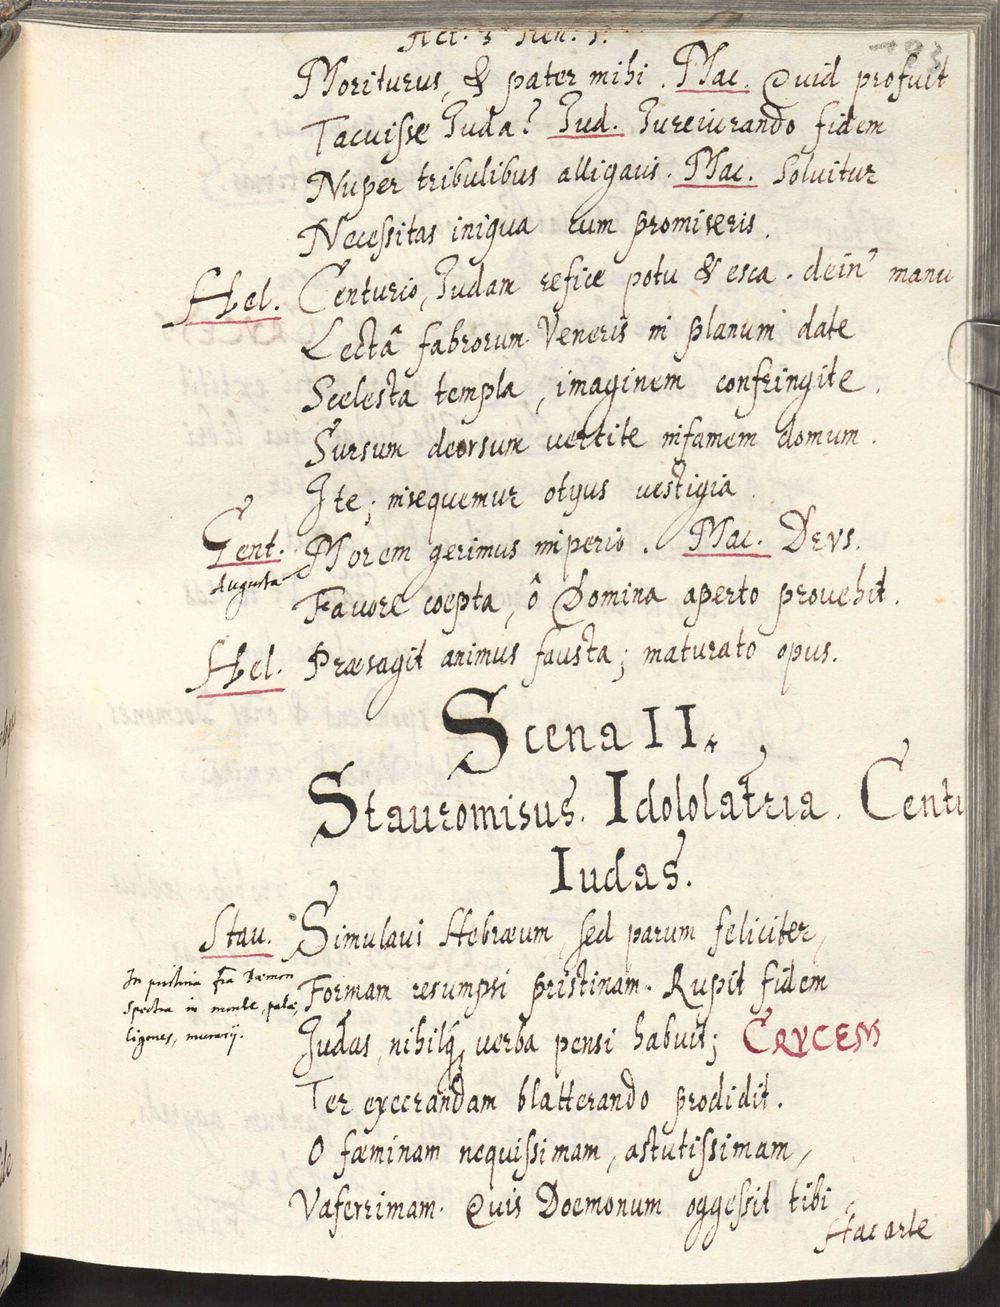 Moriturus, & pater mihi. Mac. Quid profuit
Tacuisse Juda? Jud. Jureiurando fidem
Nuper tribulibus alligaui. Mac. Soluitur
Necessitas iniqua cum promiseris.
Hel. Centurio, Judam refice potu & esca. dein' manu
Lectâ fabrorum Veneris in planum date
Scelesta templa, imaginem confringite.
Sursum deorsum vertite infamem domum.
Ite; insequemur otyus vestigia
Cent. Morem gerimus imperio. Mac. DEVS.
Augusta
Favore coepta, ô Domina aperto provehit.
Hel. Præsagit animus fausta; maturato opus.
Scena II.
Stauromisus. Idololatria. Centu
Iudas.
Stau. Simulaui Hebræum, sed parum feliciter,
In pristina Dæmon
Formam resumpsi pristinam. Rupit fidem
Spectra in monte, palæ,
Judas, nihilq; verba pensi habuit; CRVCEM
ligones, murarij.
Ter execrandam blatterando prodidit.
O fæminam nequissimam, astutissimam,
Vaferrimam. Quis Doemonum oggessit tibi
Hac arte